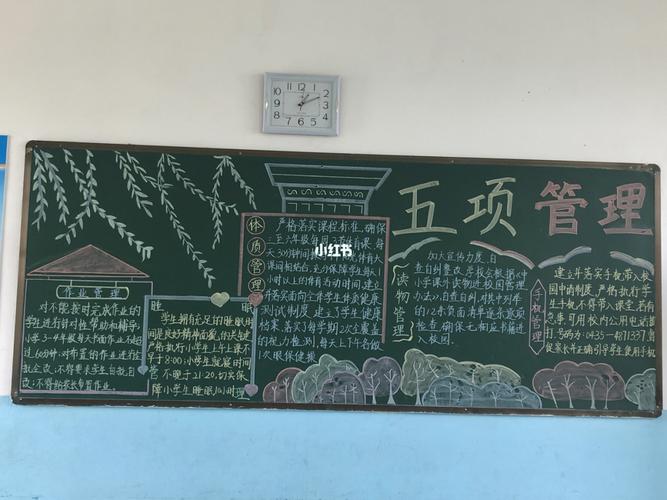 五项管理
作业管理
对不能按时完成作业的
学生进行针对性帮助和辅导,
小学3-4年级每天书面作业不超
过60分钟,对布置的作业进行全
批全改,不得要求学生自批自
改;不得给家长布置作业。
睡眠管理
学生拥有充足的睡眠时
间是良好精神面貌的关键
严格执行小学生上午上课不
早于8:00;小学生就寝时间
不晚于21:20,切实保
障小学生睡眠时间
体质管理
严格落实课程标准,确保
三至六年级每周
天30分钟
课间相结合,全力保障学生每人
小时以上的体育活动时间,建立
并落实面向全体学生体质健康
测试制度,建立了学生健康
档案,落实了每学期2次全覆盖
的视力检测,每天上下午各做
1次眼保健操
小红书
读物管理
加大宣传力度,自
查自纠整改,学校会根据《中
小学课外读物进校园管理
办法》,自查自纠,对其中列举
的12条负面清单逐条逐项
检查,确保无相应书籍进
入校园.
手机管理
建立并落实手机带入校
园申请制度,严格执行学
生手机不得带入课堂,若有
急事,可用校内公用电话拨
打,号码为:0435-4871337;督
促家长年正确引导学生使用手机